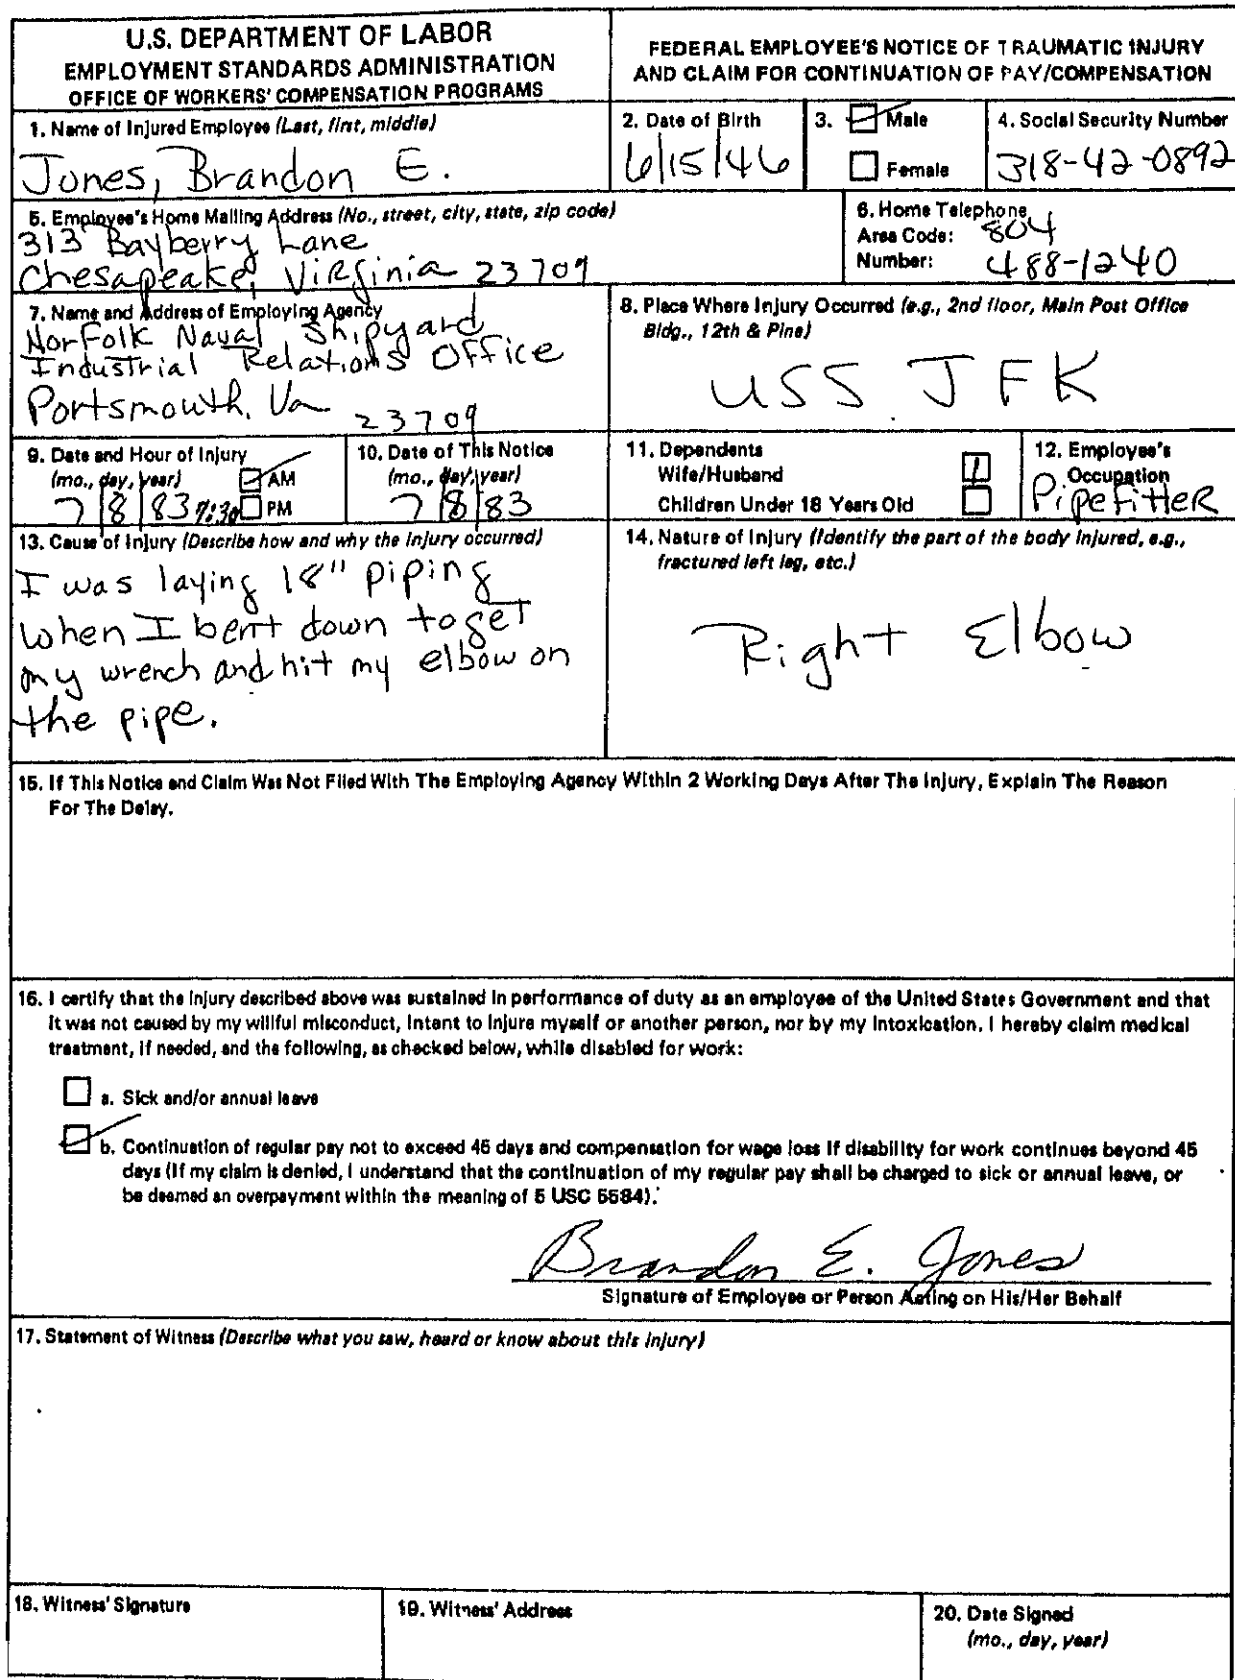 U.S. DEPARTMENT OF LABOR
EMPLOYMENT STANDARDS ADMINISTRATION
OFFICE OF WORKERS' COMPENSATION PROGRAMS
FEDERAL EMPLOYEE'S NOTICE OF TRAUMATIC INJURY
AND CLAIM FOR CONTINUATION OF PAY/COMPENSATION
1. Name of Injured Employee (Last, first, middle)
Jones, Brandon E.
2. Date of Birth
6/15/46
3. Male
Female
4. Social Security Number
318-42-0892
5. Employee's Home Mailing Address (No., street, city, state, zip code)
313 Bayberry Lane
Chesapeake, Virginia 23709
6. Home Telephone
Area Code: 804
Number: 488-1240
7. Name and Address of Employing Agency
Norfolk Naval Shipyard
Industrial Relations Office
Portsmouth, Va 23709
8. Place Where Injury Occurred (e.g., 2nd floor, Main Post Office
Bldg., 12th & Pine)
USS JFK
9. Date and Hour of Injury
(mo., day, year) AM
7/8/83 9:30 PM
10. Date of This Notice
(mo., day, year)
7/8/83
11. Dependents
Wife/Husband 1
Children Under 18 Years Old
12. Employee's
Occupation
Pipefitter
13. Cause of Injury (Describe how and why the injury occurred)
I was laying 18" piping
when I bent down to get
my wrench and hit my elbow on
the pipe.
14. Nature of Injury (Identify the part of the body injured, e.g.,
fractured left leg, etc.)
Right Elbow
15. If This Notice and Claim Was Not Filed With The Employing Agency Within 2 Working Days After The Injury, Explain The Reason
For The Delay.
16. I certify that the injury described above was sustained in performance of duty as an employee of the United States Government and that
it was not caused by my willful misconduct, intent to injure myself or another person, nor by my intoxication. I hereby claim medical
treatment, if needed, and the following, as checked below, while disabled for work:
a. Sick and/or annual leave
b. Continuation of regular pay not to exceed 45 days and compensation for wage loss if disability for work continues beyond 45
days (If my claim is denied, I understand that the continuation of my regular pay shall be charged to sick or annual leave, or
be deemed an overpayment within the meaning of 5 USC 5584).
Brandon E. Jones
Signature of Employee or Person Acting on His/Her Behalf
17. Statement of Witness (Describe what you saw, heard or know about this injury)
18. Witness' Signature
19. Witness' Address
20. Date Signed
(mo., day, year)